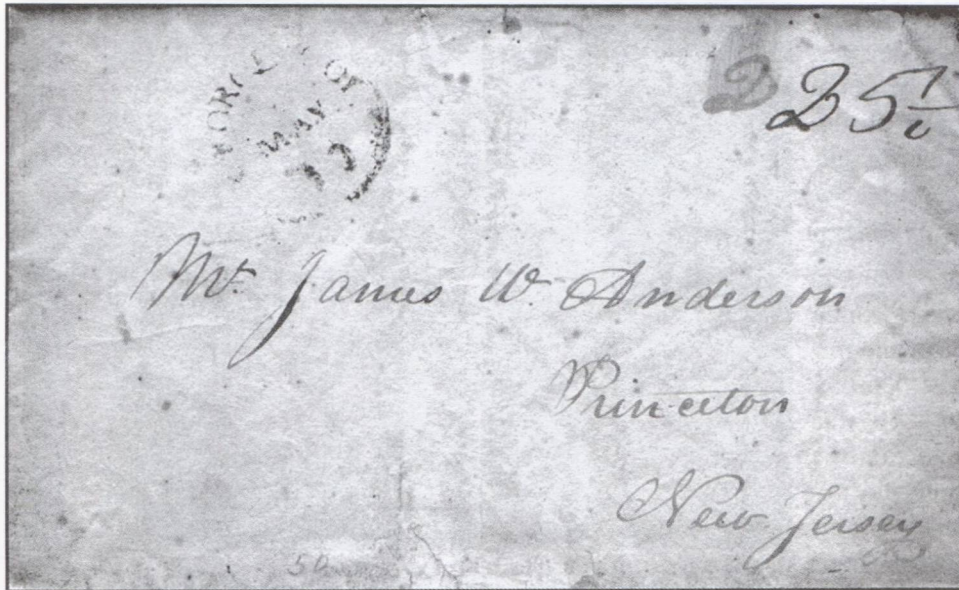 MAY
25
Mr. James W. Anderson
Princeton
New Jersey
50